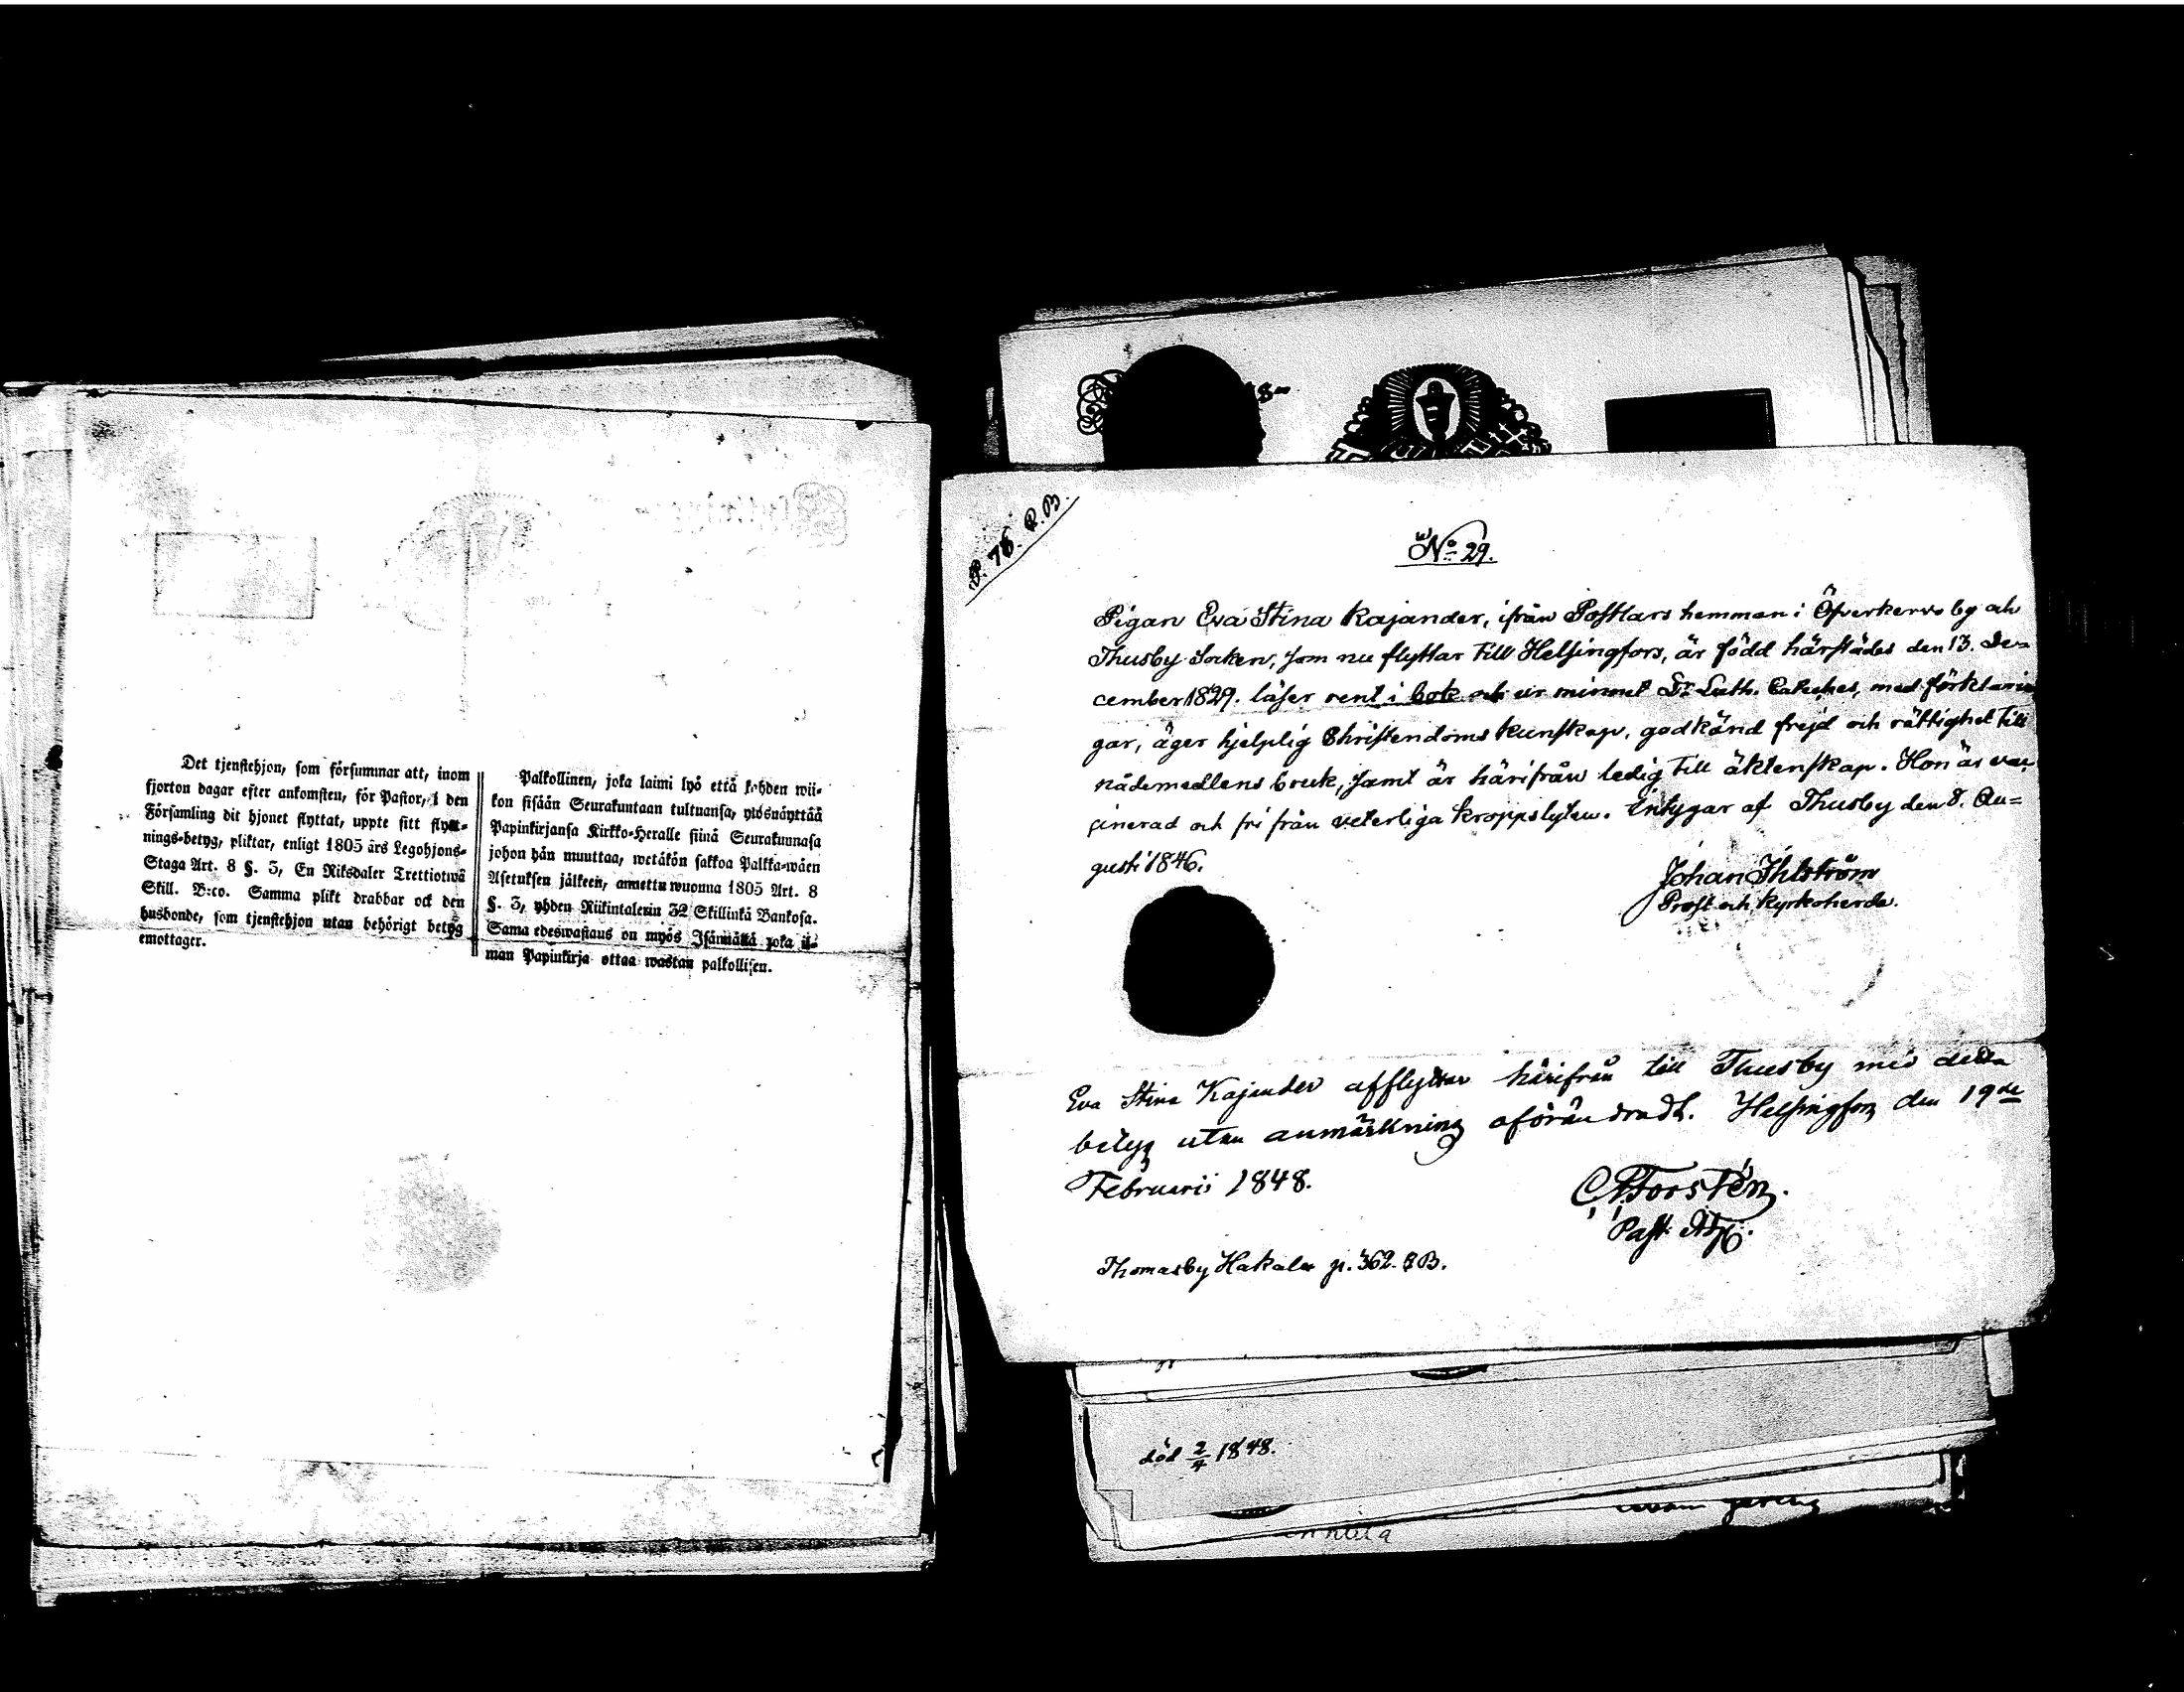 Det tjenstehjon, som försummar att, inom
fjorton dagar efter ankomsten, för Pastor, i den
Församling dit hjonet flyttat, uppte sitt flytt-
nings-betyg, pliktar, enligt 1805 års Legohjons-
Staga Art. 8 §. 3, En Riksdaler Trettiotwå
Skill. B:co. Samma plikt drabbar ock den
husbonde, som tjenstehjon utan behörigt betyg
emottager.
Palkollinen, joka laimi lyö että kahden wii-
kon sisään Seurakuntaan tultuansa, ylösnäyttää
Papinkirjansa Kirkko-Heralle siinä Seurakunnasa
johon hän muuttaa, wetäkön sakkoa Palkka-wäen
Asetuksen jälkeen, annettu wuonna 1805 Art. 8
§. 3, yhden Riikintalerin 32 Skillinkä Bankosa.
Sama edeswastaus on myös Isännällä joka il-
man Papinkirja ottaa wastan palkollisen.
P. 78. R.B.
No 29.
Pigan Eva Stina Kajander, ifrån Postlars hemman i Öfverkervo by och
Thusby Socken, som nu flyttar till Helsingfors, är född härstädes den 13. De-
cember 1829. läser rent i bok och ur minnet Dr Luth. Cateches, med förklarin
gar, äger hjelplig Christendoms kunskap, godkänd frejd och rättighet till
nådemedlens bruk, samt är härifrån ledig till äktenskap. Hon är vac
cinerad och fri från veterliga kroppslyten. Intygar af Thusby den 8. Au=
gusti 1846.
Johan Ihlström
Prost och Kyrkoherde.
Eva Stina Kajander afflyttar härifrån till Thusby med detta
betyg utan anmärkning oförändradt. Helsingfors den 19de
Februarii 1848.
Forstén.
Past.
Thomasby Hakala p. 362. R.B.
död 2/4 1848.